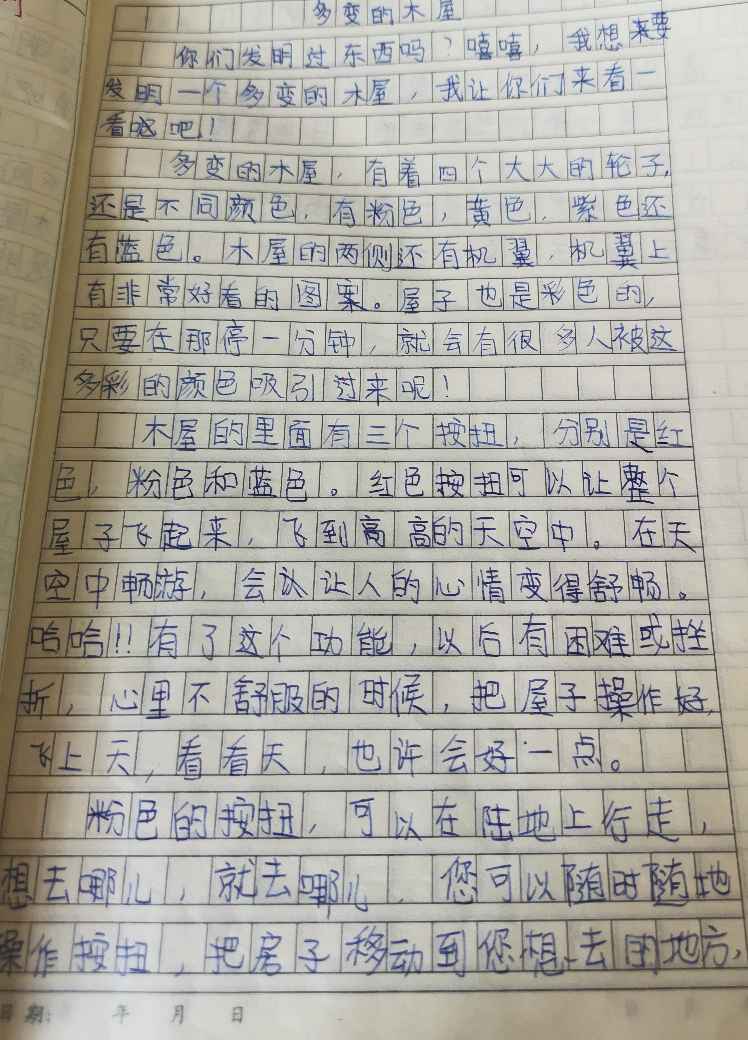 多变的木屋
你们发明过东西吗?嘻嘻,我想来要
发明一个多变的木屋,我让你们来看一
看吧!
多变的木屋,有着四个大大的轮子,
还是不同颜色,有粉色,黄色,紫色还
有蓝色。木屋的两侧还有机翼,机翼上
有非常好看的图案。屋子也是彩色的,
只要在那停一分钟,就会有很多人被这
多彩的颜色吸引过来呢!
木屋的里面有三个按扭,分别是红
色,粉色和蓝色。红色按扭可以让整个
屋子飞起来,飞到高高的天空中。在天
空中畅游,会让人的心情变得舒畅。
哈哈!!有了这个功能,以后有困难或挫
折,心里不舒服的时候,把屋子操作好,
飞上天,看看天,也许会好一点。
粉色的按扭,可以在陆地上行走,
想去哪儿,就去哪儿,您可以随时随地
操作按扭,把房子移动到您想去的地方,
日期: 年 月 日